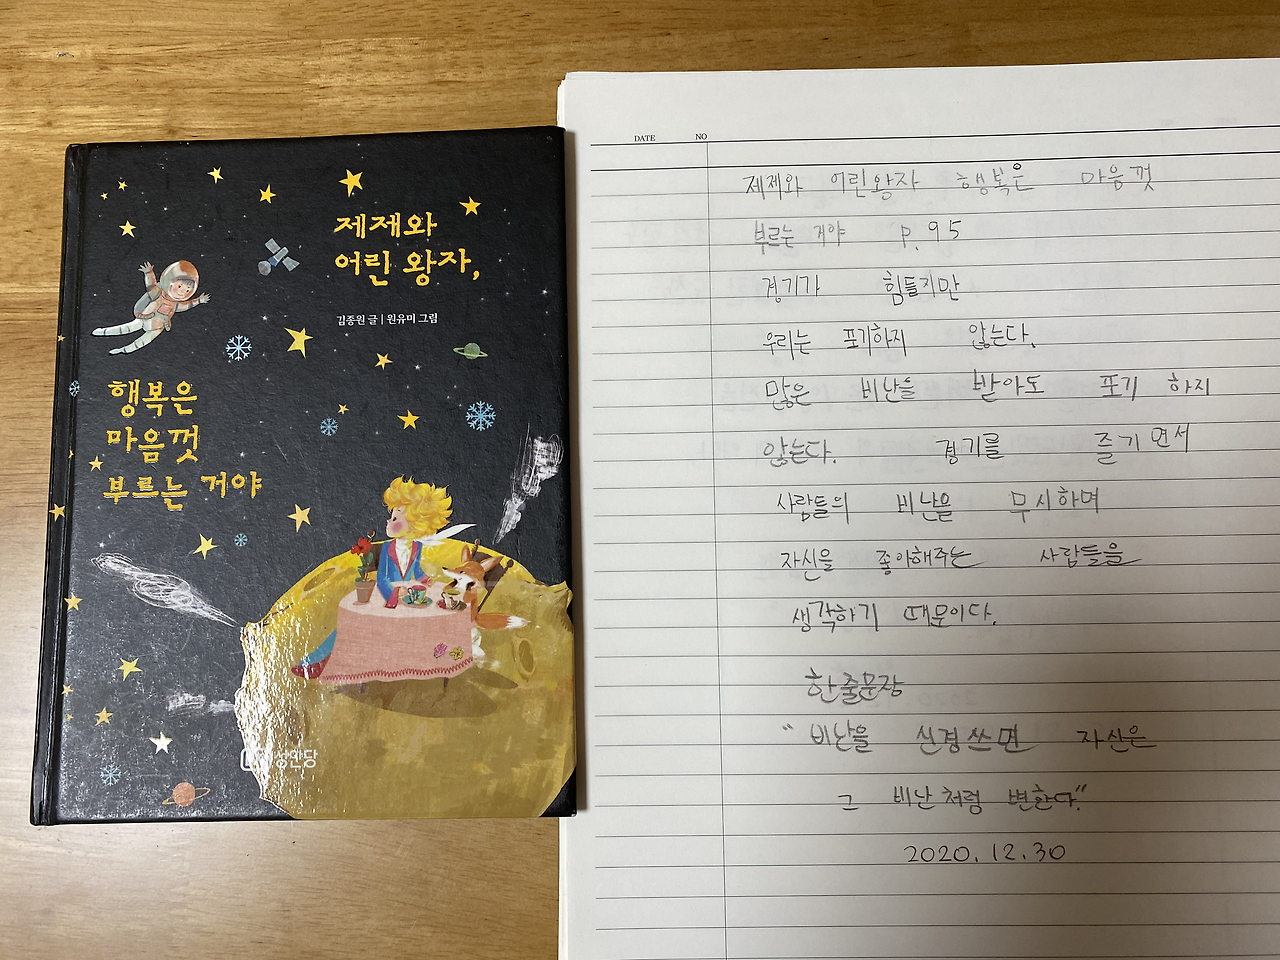 제제와
어린 왕자,
김종원 글 | 원유미 그림
행복은
마음껏
부르는 거야
성안당
DATE NO
제제와 어린왕자 행복은 마음껏
부르는 거야 P.95
경기가 힘들지만
우리는 포기하지 않는다.
많은 비난을 받아도 포기 하지
않는다. 경기를 즐기면서
사람들의 비난을 무시하며
자신을 좋아해주는 사람들을
생각하기 때문이다.
한줄문장
"비난을 신경쓰면 자신은
그 비난처럼 변한다."
2020.12.30